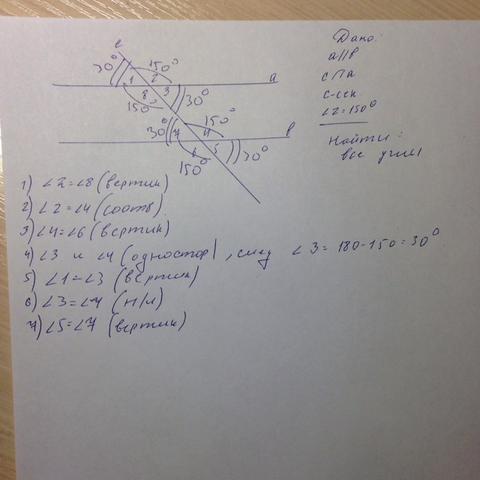 Дано:
a||b
c∩a
c-сек.
∠2=150°
Найти:
все углы
c
30° 150°
1 2 a
8 3 30°
150°
30° 7 4 150° b
6 5 30°
150°
1) ∠2=∠8 (вертик)
2) ∠2=∠4 (соотв.)
3) ∠4=∠6 (вертик)
4) ∠3 и ∠4 (одностор), след ∠3=180-150=30°
5) ∠1=∠3 (вертик)
6) ∠3=∠7 (н/л)
7) ∠5=∠7 (вертик)